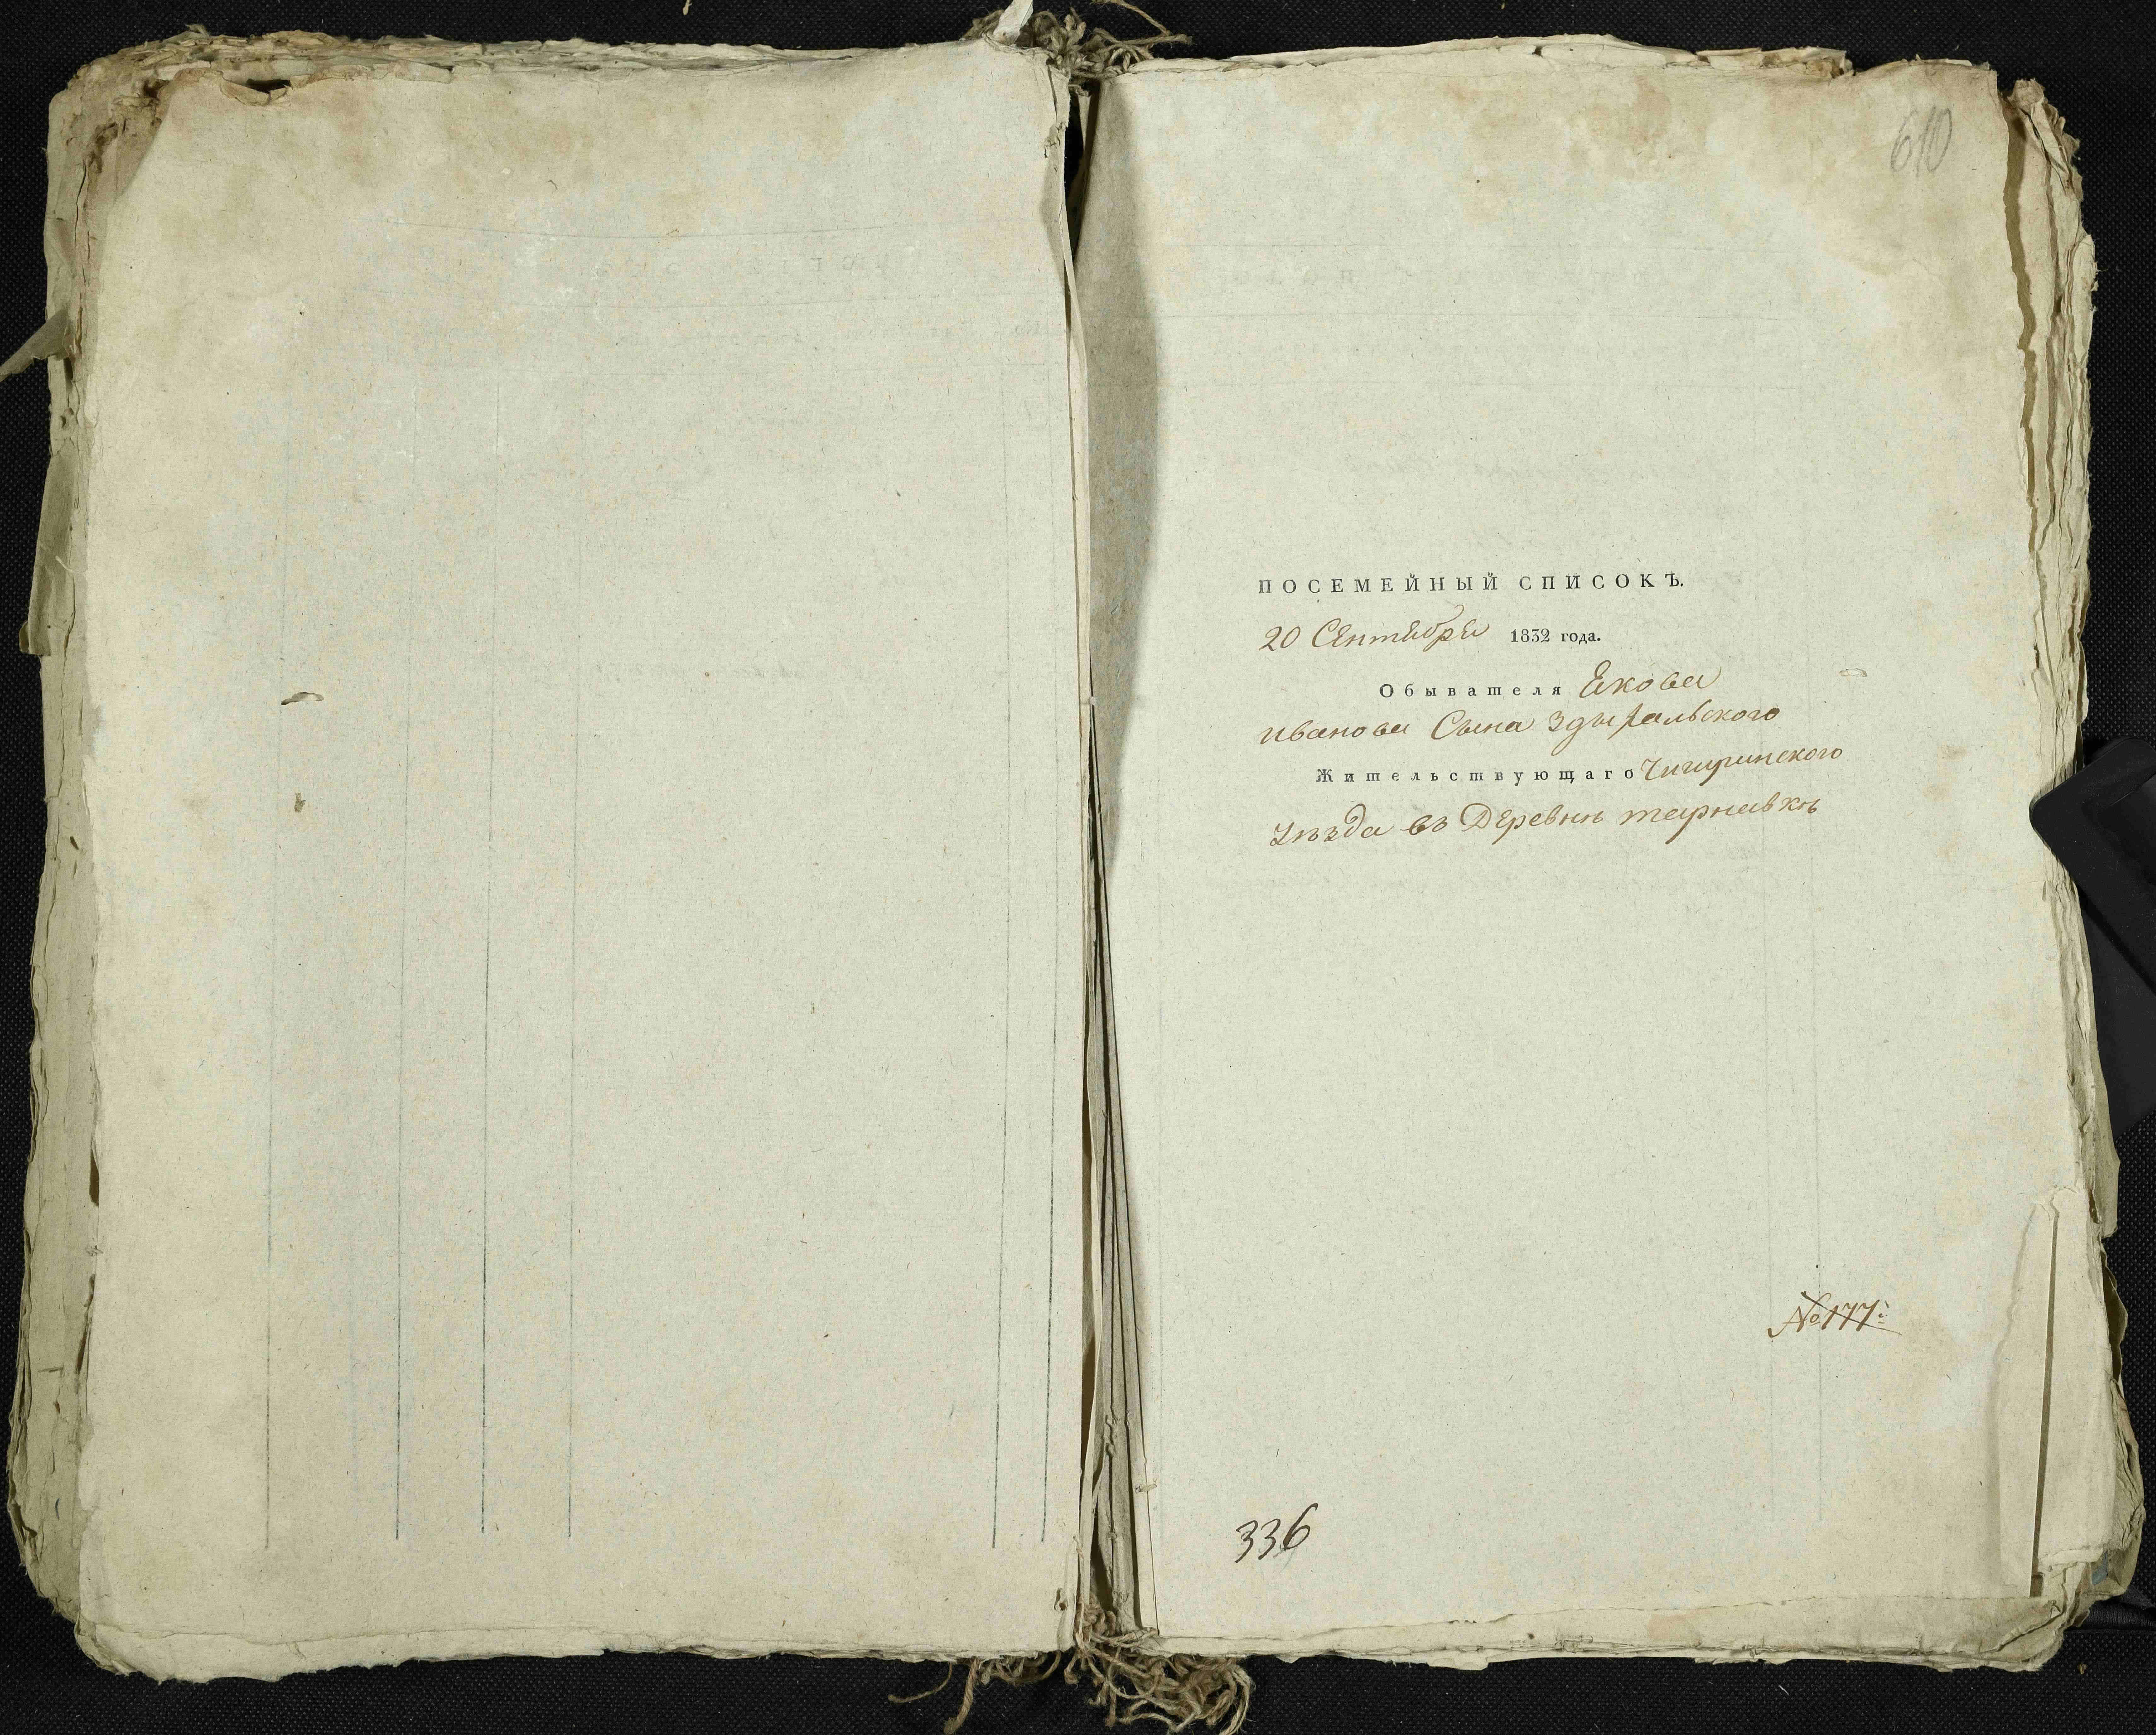 610
ПОСЕМЕЙНЫЙ СПИСОКЪ.
20 Сентября 1832 года.
Обывателя Якова
иванова Сына Здыральского
Жительствующаго Чигиринского
Уѣзда въ Деревнѣ тарнавкѣ
№177:
336